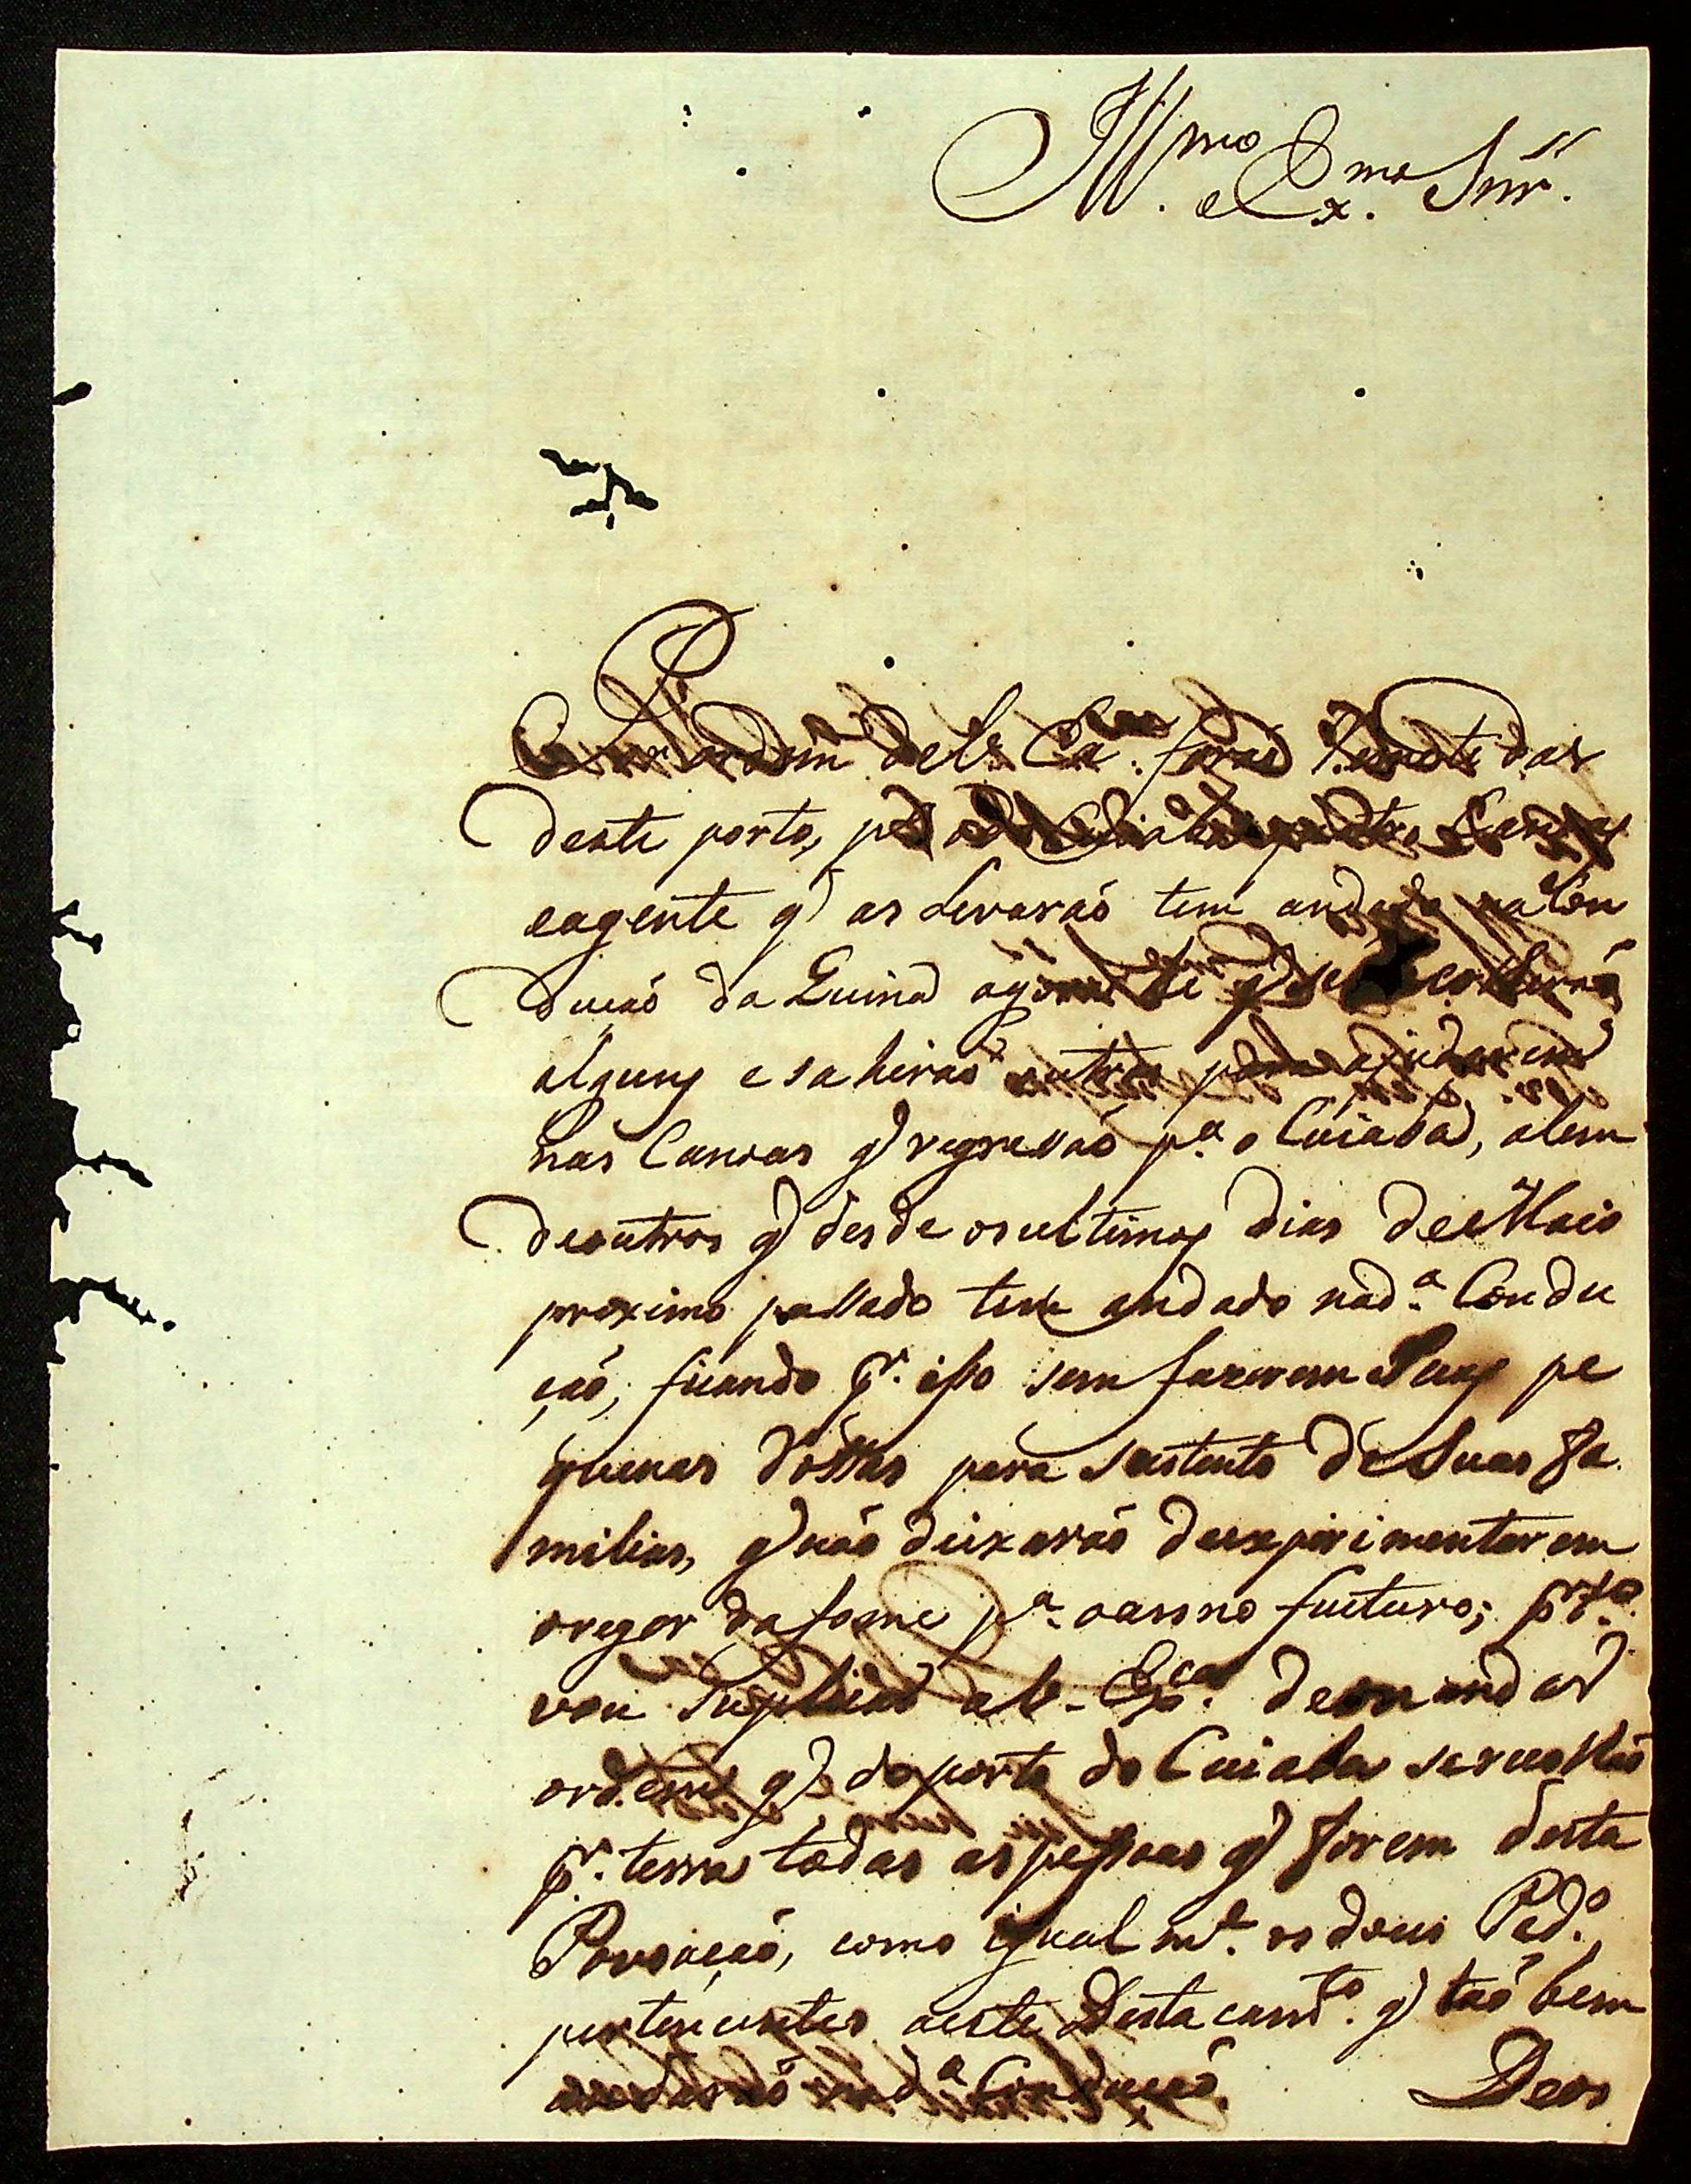 Ill.mo e Ex.mo Snr̃.
Por ordem de V. Ex.ca forão Remetidas
deste porto, pa o do Cuiabá quatro Canoas
eagente q̃ as Levarão tem andado na Con
ducão da Quina agora he q̃ se recolherão
alguns e sahirão outros para ajudarem
nas Canoas q̃ regressão p.a o Cuiabá, alem
deoutros q̃ desde osultimos dias de Maio
proximo passado tem andado nad.a Condu
ção, ficando p.r isso sem fazerem Suas pe
quenas róssas para sustento de Suas fa
milias, q̃ não deixarão dexpirimentarem
origor dafome p.a oanno futuro; p.rt.o
vou Suplicar a V. Ex.ca demandar
ordem q̃ do porto do Cuiaba se
p.r terra todas as pessoas q̃ forem desta
Povoacão, como igual m.e os dous Ped.
pertencentes aeste Destacam.to q̃ tão bem
andarão nad.a Conducão.
Deos